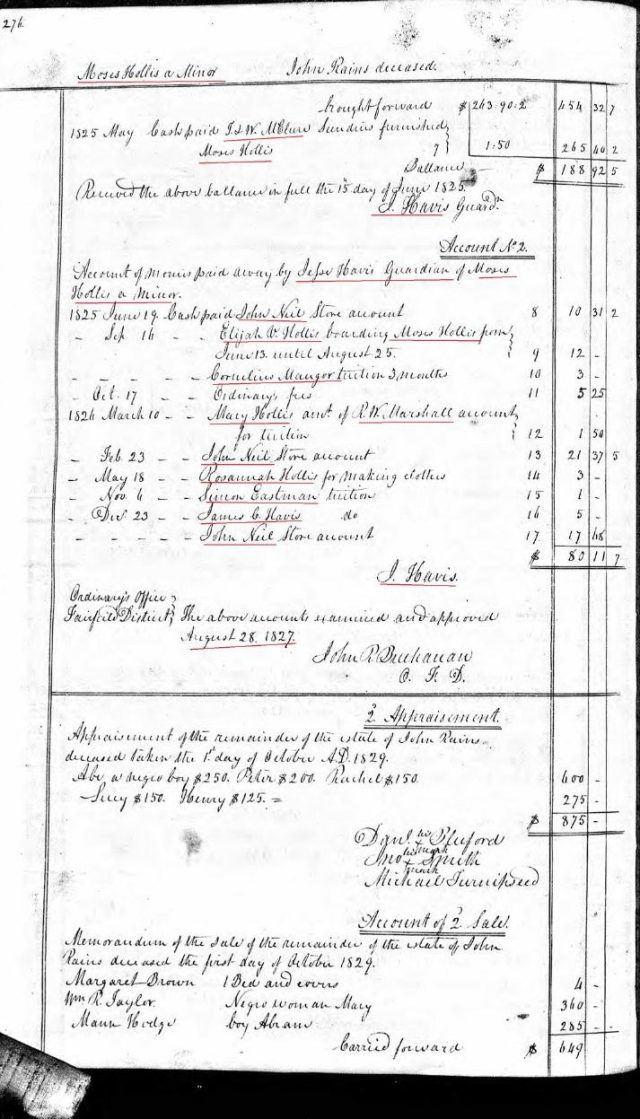 276.
Moses Hollis a Minor John Rains deceased.
brought forward $ 243.90.2 454 32 7
1825 May Cash paid J & W. McClure Sundries furnished
Moses Hollis 7 1.50 265 40 2
Ballance $ 188 92 5
Received the above ballance in full the 15th day of June 1825.
J. Havis Guardn.
Account No 2.
Account of monies paid away by Jesse Havis Guardian of Moses
Hollis a Minor.
1825 June 19 Cash paid John Neil Store account 8 10 31 2
" Sep 16 " " Elijah W. Hollis boarding Moses Hollis from
June 13 until August 25. 9 12 -
" " " " Cornelius Maugor tuition 3 months 10 3 -
" Oct. 17 " " Ordinary's fees 11 5 25
1826 March 10 " " Mary Hollis amt. of R. W. Marshall account
for tuition 12 1 50
" Feb 23 " " John Neil Store account 13 21 37 5
" May 18 " " Rosannah Hollis for making clothes 14 3 -
" Nov. 6 " " Simon Eastman tuition 15 1 -
" Dec. 23 " " James C. Havis do 16 5 -
" " " " John Neil Store account 17 17 68
$ 80 11 7
J. Havis.
Ordinary's Office
Fairfield District The above accounts examined and approved
August 28. 1827.
John R. Buchanan
O. F. D.
2d Appraisement.
Appraisement of the remainder of the estate of John Rains
deceased taken the 1st day of October A.D. 1829.
Abe a negro boy $250. Peter $200. Rachel $150. 600 -
Lucy $150. Henry $125. = 275 -
$ 875 -
Danl. his x mark
Jno his x mark Smith
Michael Turnipseed
Account of 2d Sale.
Memorandum of the sale of the remainder of the estate of John
Rains deceased the first day of October 1829.
Margaret Brown 1 Bed and covers 4 -
Wm R. Taylor Negro woman Mary 360 -
Mann Hodge boy Abram 285 -
Carried forward $ 649